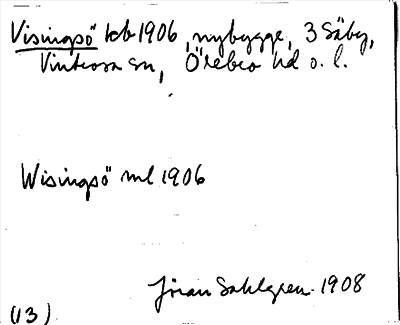 Visingsö kb 1906, nybygge, 3 Säby,
Vintrosa sn, Örebro hd o. l.
Wisingsö ml 1906
Jöran Sahlgren 1908
(13)